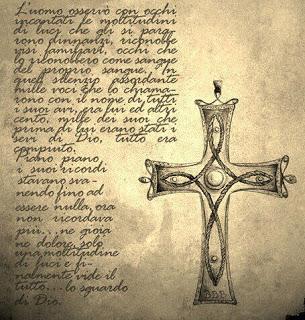 L'uomo osservò con occhi
incantati le moltitudini
di luci che gli si para_
rono dinnanzi, riconobbe
visi familiari, occhi che
lo riconobbero come sangue
del proprio sangue, in
quel silenzio assordante
mille voci che lo chiama_
rono con il nome di tutti
i suoi avi, era lui ed altri
cento, mille dei suoi che
prima di lui erano stati i
servi di Dio, tutto era
compiuto.
Piano piano
i suoi ricordi
stavano sva_
nendo fino ad
essere nulla, ora
non ricordava
più... ne gioia
ne dolore, solo
una moltitudine
di luci e fi_
nalmente vide il
tutto... lo sguardo
di Dio.